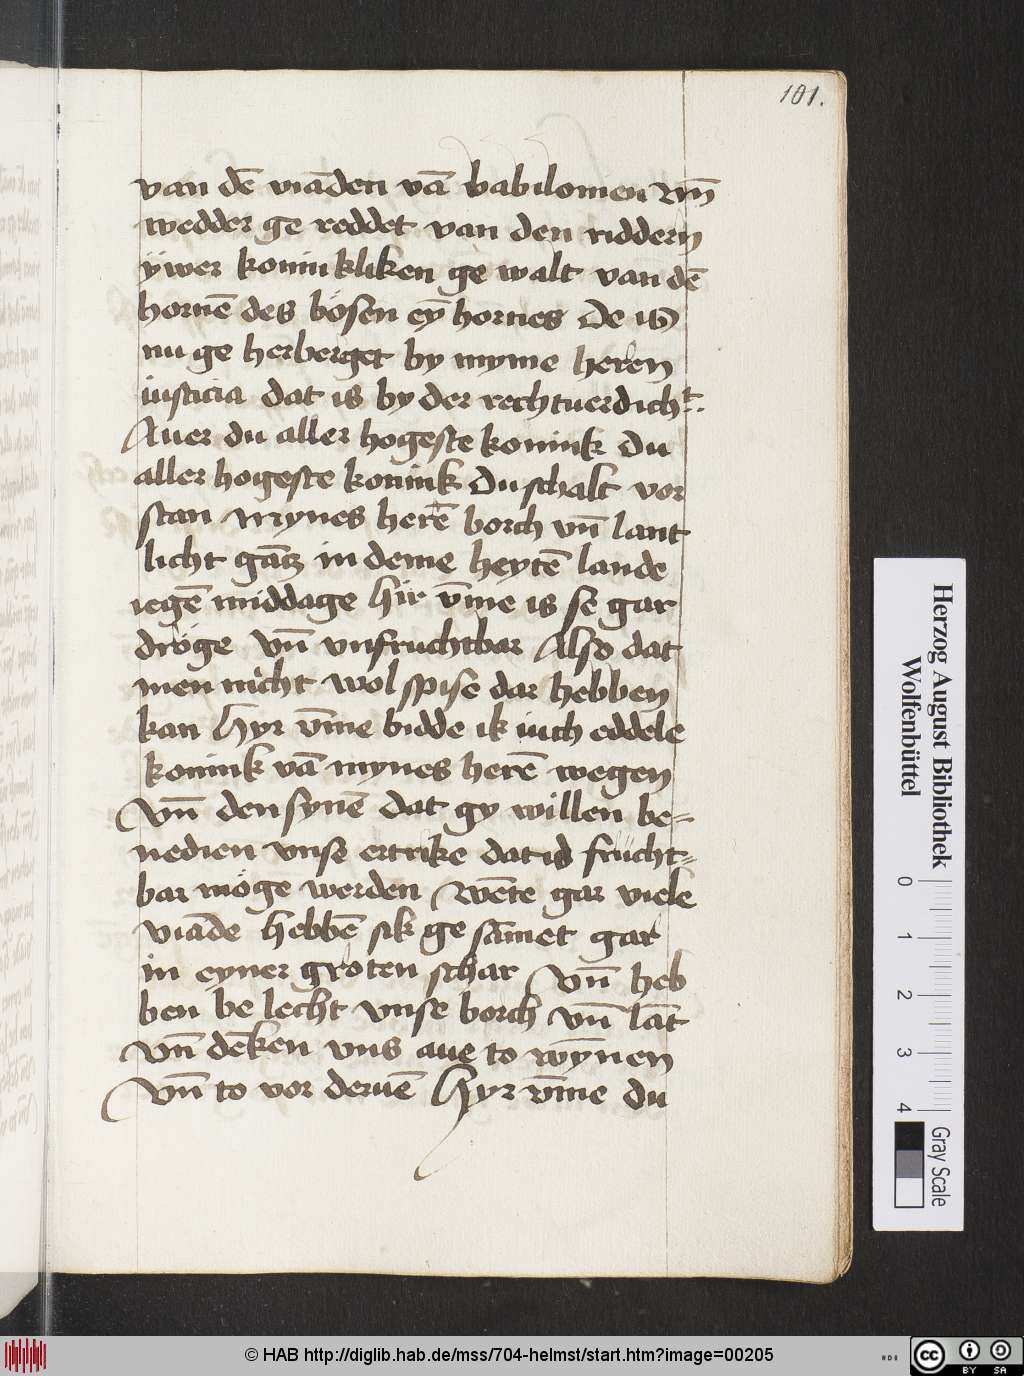 101.
van dē viāden vā babilonien vn̄
wedder ge reddet van den riddern
ÿwer konnikliken ge walt van dē
hornē des bösen eȳ hornes De is
nu ge herberget by myme heren
iusticia dat is by der rechtuerdicht.
Auer du aller hogeste konink du
aller hogeste konink du schalt vor
stan mynes herē borch vn̄ lant
licht gātz in deme heytē lande
iegē middage hir v̄me is se gar
dröge vn̄ vnfruchtbar Also dat
men nicht wol spise dar hebben
kan hyr v̄me bidde ik iuch eddele
konink vā mynes herē wegen
vn̄ den synē dat gy willen be⸗
nedien vnse ertrike dat id frücht⸗
bar möge werden wēte gar viele
viāde hebbē sik ge sāmet gar
in eyner groten schar vn̄ heb
ben be lecht vnse borch vn̄ lāt
vn̄ dēken vns aue to wȳnen
vn̄ to vor deruē hyr v̄me du
Herzog August Bibliothek
Wolfenbüttel
0 1 2 3 4
Gray Scale
© HAB http://diglib.hab.de/mss/704-helmst/start.htm?image=00205
cc BY SA